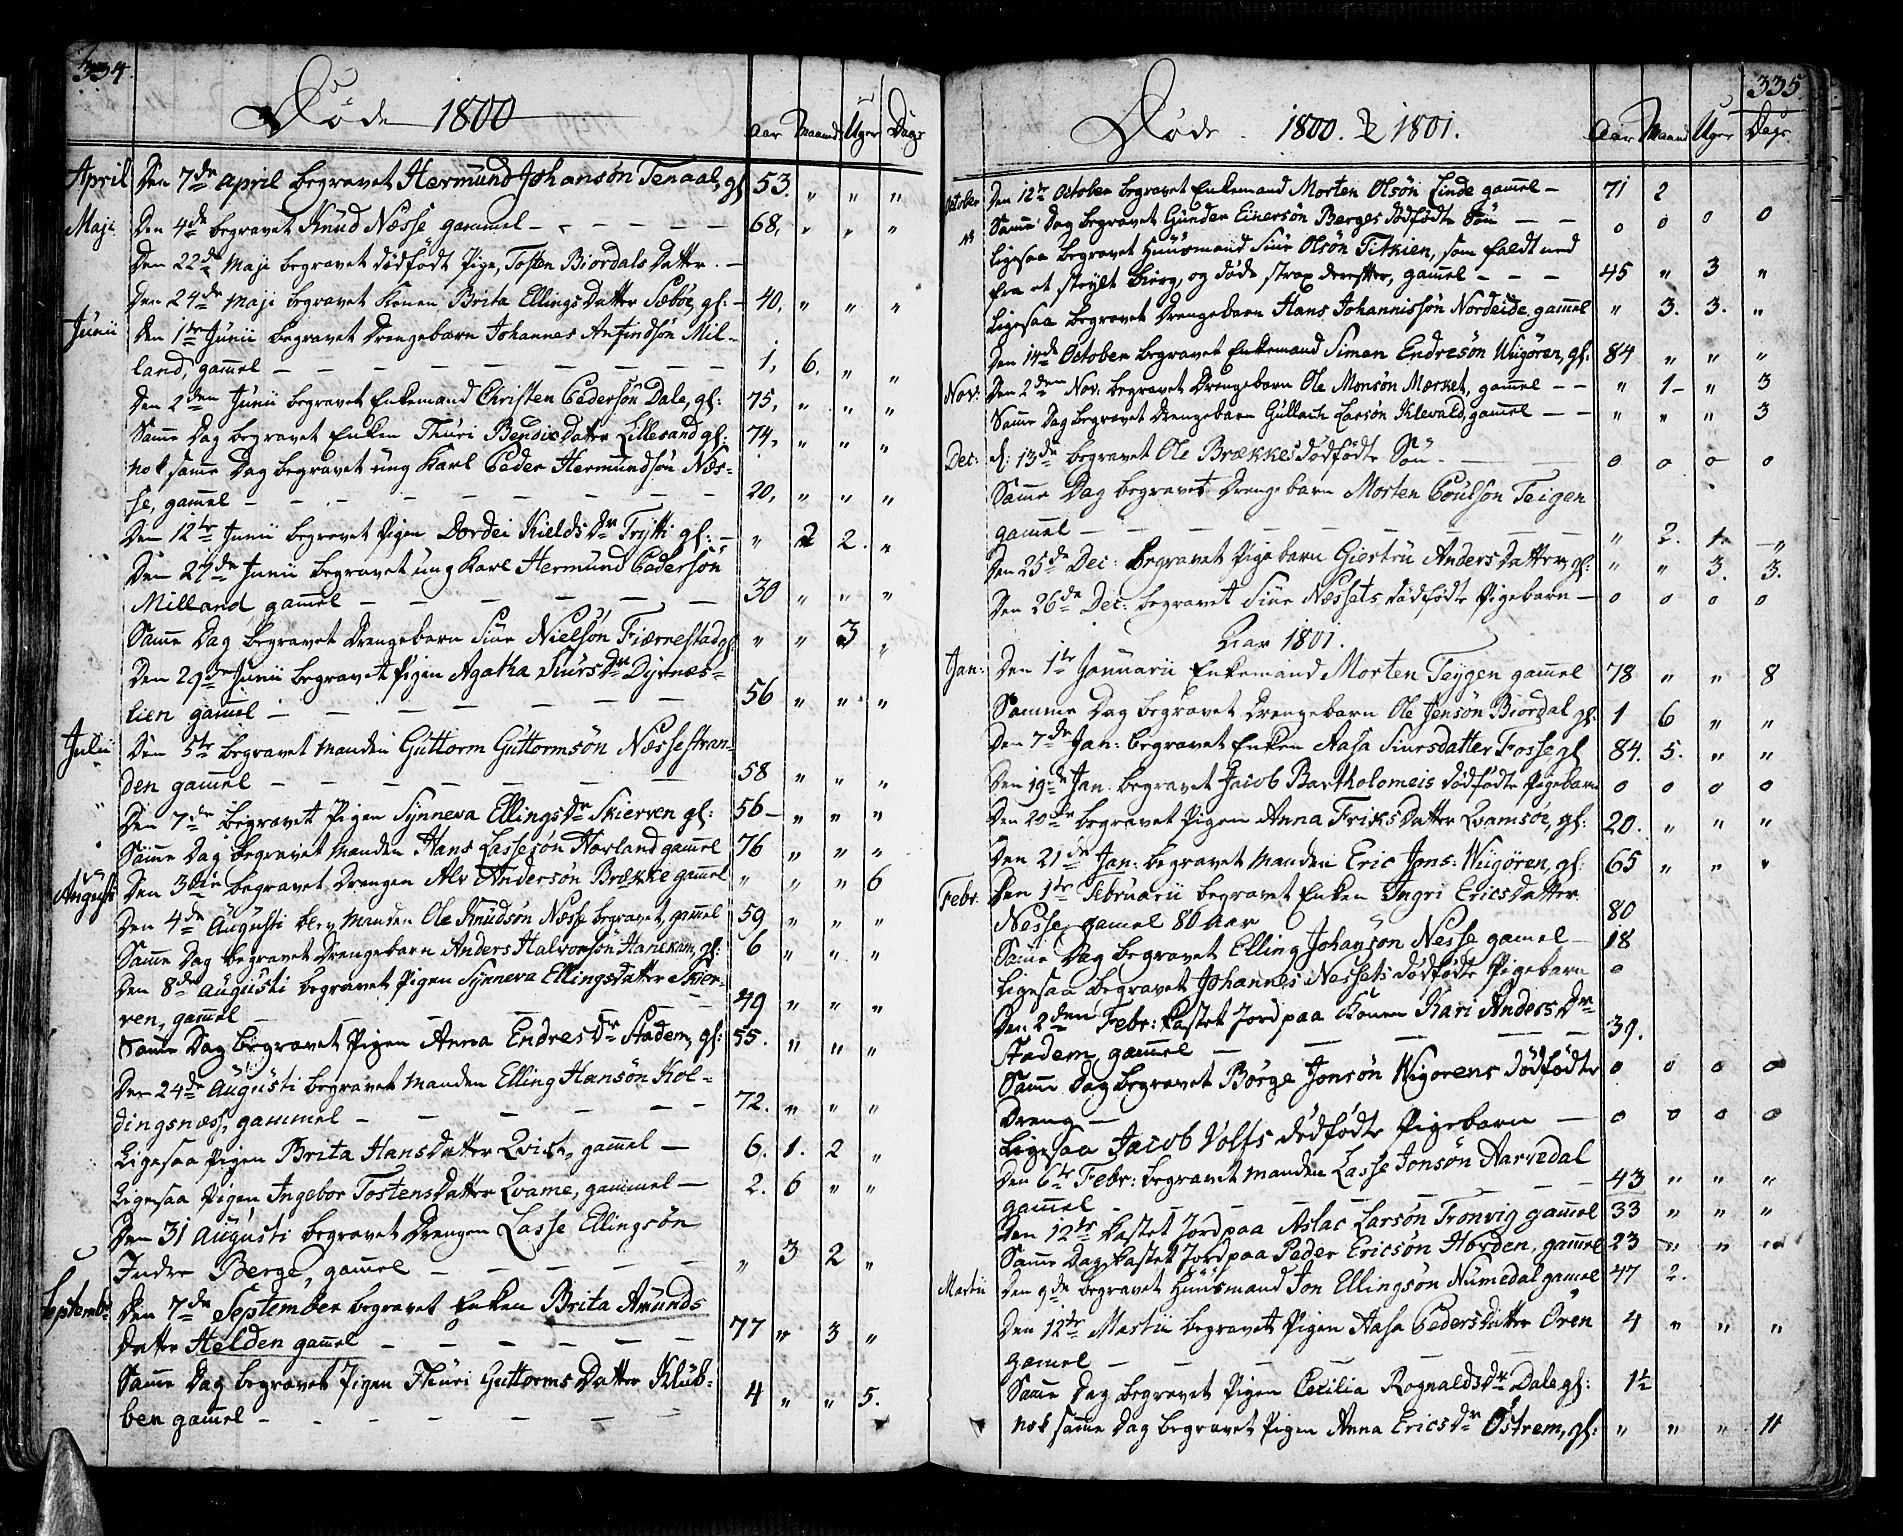 334
Døde 1800
Aar Maand Uger Dage
April Den 7de April begravet Hermund Johansøn Tenaal, gl 53. " " "
Maji Den 4de begravet Knud Næsse gammel - - - - - 68, " " "
Den 22de Maji begravet dødfødt Pige, Tosten Biordals Datter. -
Den 24de Maji begravet Konen Brita Ellings Datter Sæbøe, gl: - 40, " " "
Junii Den 1te Junii begravet Drengebarn Johannes Anfindsøn Mil-
land, gammel - - - - - - - 1, 6. " "
Den 2den Junii begravet Enkemand Christen Pedersøn Dale, gl: 75, " " "
Samme Dag begravet Enken Thuri BendixDatter Lillesand gl: 74, " " "
nok samme Dag begravet ung Karl Peder Hermundsøn Næs-
se, gammel - - - - - - - 20, " " "
Den 12te Junii begravet Pigen Dordei Kields Dr Trytti gl: - " 2 2. "
Den 27de Junii begravet ung Karl Hermund Pedersøn
Milland, gammel - - - - - 30 " " "
Samme Dag begravet Drengebarn Siur Nielsøn Fiærnestad gl " " 3 "
Den 29de Junii begravet Pigen Agatha Siurs Dr Dyrnæs-
lien gammel - - - - - - 56 " " "
Julii Den 5te begravet Manden Guttorm Guttormsøn Næssestran-
den gammel - - - - - - 58 " " "
Den 7de begravet Pigen Synneva Ellings Dr Skierven gl: 56 - " " "
Samme Dag begravet Manden Hans Lassesøn Hovland gammel 76 " " "
Augusti Den 3die begravet Drengen Alv Andersøn Brække gammel " " " 6
Den 4de Augusti blev Manden Ole Knudsøn Næsse begravet, gammel 59 " " "
Samme Dag begravet Drengebarn Anders Halvorsøn gl: 6 " " "
Den 8de Augusti begravet Pigen Synneva EllingsDatter Skier-
ven, gammel - - - - - 49 " " "
Samme Dag begravet Pigen Anna Endres Dr Stadem, gl: 55. " " "
Den 24de Augusti begravet Manden Elling Hansøn Kol-
dingsnæss, gammel - - - - - 72. " " "
Ligesaa Pigen Brita HansDatter Qvist, gammel - 6. 1. 2 "
Ligesaa Pigen, Ingebor TostensDatter Qvame, gammel - 2. 6 " "
Den 31 Augusti begravet Drengen Lasse Ellingsøn
Indre Berge, gammel - - - - - " 3 2 "
Septembr Den 7de September begravet Enken Brita Amunds
Datter Helden gammel - - - - - 77 " 3 "
Samme Dag begravet Pigen Thuri Guttorms Datter Klub-
ben gammel - - - - - - 4 " " 5.
335.
Døde 1800. & 1801.
Aar Maand Uger Dage
October Den 12te October begravet Enkemand Morten Olsøn Linde gammel - 71 2
Samme Dag begravet Gunder Einersøn Berges dødfødte Søn - - 0 0 0 0
Ligesaa begravet Huusmand Siur Olsøn Titkien, som faldt ned
fra et steylt Bierg, og døde strax derefter, gammel - - - 45 " 3 "
Ligesaa begravet Drengebarn Hans Johannissøn Nordeide, gammel " 3. 3. "
Den 14de October begravet Enkemand Simen Endresøn Wiigøren, gl. 84 " " "
Nov: Den 2den Nov. begravet Drengebarn Ole Monsøn Mærket, gammel - - " 1 - " 3
Samme Dag begravet Drengebarn Gullach Larsøn Klevald, gammel - - " " " 3
Dec: d: 13de begravet Ole Brækkes dødfødte Søn - 0 0 0 0
Samme Dag begravet Drengebarn Morten Poulsøn Teigen
gammel - - - - - - " 2. 1. "
Den 25de Dec: begravet Pigebarn Giertru AndersDatter, gl: " " 3. 3.
Den 26de Dec: begravet Siur Næssets dødfødte Pigebarn - 0 0 0 0
Aar 1801.
Jan: Den 1te Januarii Enkemand Morten Teygen gammel 78 " " 8
Samme Dag begravet Drengebarn Ole Jensøn Biordal gl. 1 6 " "
Den 7de Jan: begravet Enken Aasa Siursdatter Fosse gl 84. 5. " "
Den 19de Jan. begravet Jacob Bartholomeis dødfødte Pigebarn 0 0 0 0
Den 20de begravet Pigen Anna FriksDatter Qvamsøe, gl: 20. " " "
Den 21de Jan: begravet Manden Eric Jons: Wiigøren, gl: 65 " " "
Febr. Den 1te Februarii begravet Enken Ingri EricsDatter
Nesse, gamel 80 Aar 80
Samme Dag begravet Elling Johansøn Nesse gamel - 18
Ligesaa begravet Johannes Nessets dødfødte Pigebarn 0
Den 2den Febr: kastet Jord paa Konen Kari Anders Dr
Stadem, gammel - - - - - 39.
Samme Dag begravet Børge Jonsøn Wigørens dødfødte 0 0 0 0
Dreng -
Ligesaa Jacob Volfs dødfødte Pigebarn - 0 0 0 0
Den 6te Febr: begravet Manden Lasse Jonsøn Aarvedal
gammel - - - - - 43 " " "
Den 12te kastet Jord paa Aslac Larsøn Tronvig gammel 33 " " "
Samme Dag kastet Jord paa Peder Ericsøn Hovden, gammel 23 " " "
Martii Den 9de begravet Huusmand Jon Ellingsøn Numedal gamel 47 2.
Den 12te Martii begravet Pigen Aasa PedersDatter Øren 4 " " "
gamel - - - - - -
Samme Dag begravet Pigen Cecilia Rognalds Dr Dale gl: 1½
nok samme Dag begravet Pigen Anna Erics Dr Østrem, gl: " " " 11